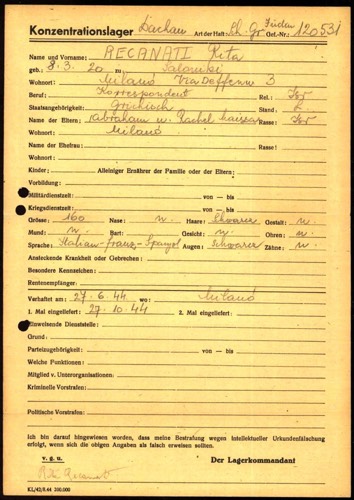 Konzentrationslager Dachau Art der Haft: Sch. Gr. Juden Gef.-Nr.: 120531
Name und Vorname: RECANATI Rita
geb.: 8. 3. 20 zu Saloniki
Wohnort Milano Via 3
Beruf: Korrespondent Rel.: Isr
Staatsangehörigkeit: Griechisch Stand:
Name der Eltern: Abraham u. Rachel Rasse: Isr
Wohnort Milano
Name der Ehefrau: Rasse:
Wohnort
Kinder: Alleiniger Ernährer der Familie oder der Eltern:
Vorbildung:
Militärdienstzeit: von — bis
Kriegsdienstzeit: von — bis
Grösse: 160 Nase: n. Haare: Schwarz Gestalt: n.
Mund: n. Bart: Gesicht: n. Ohren: n.
Sprache: Italien-franz-Spanjol Augen: Schwarz Zähne: n.
Ansteckende Krankheit oder Gebrechen:
Besondere Kennzeichen:
Rentenempfänger:
Verhaftet am: 27. 6. 44 wo: Milano
1. Mal eingeliefert: 27. 10. 44 2. Mal eingeliefert:
Einweisende Dienststelle:
Grund:
Parteizugehörigkeit: von — bis
Welche Funktionen:
Mitglied v. Unterorganisationen:
Kriminelle Vorstrafen:
Politische Vorstrafen:
Ich bin darauf hingewiesen worden, dass meine Bestrafung wegen intellektueller Urkundenfälschung
erfolgt, wenn sich die obigen Angaben als falsch erweisen sollten.
v. g. u. Der Lagerkommandant
Rita Recanati
KL/42/8.44 200.000